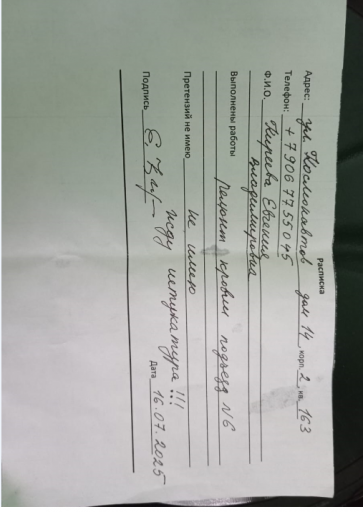 Расписка
Адрес: ул. Космонавтов дом 14 корп. 2 кв. 163
Телефон: +79067755045
Ф.И.О. Киреева Евгения
Владимировна
Выполнены работы
Ремонт кровли подъезд №6
Претензий не имею не имею
жду штукатура !!!
Подпись Дата 16.07.2025